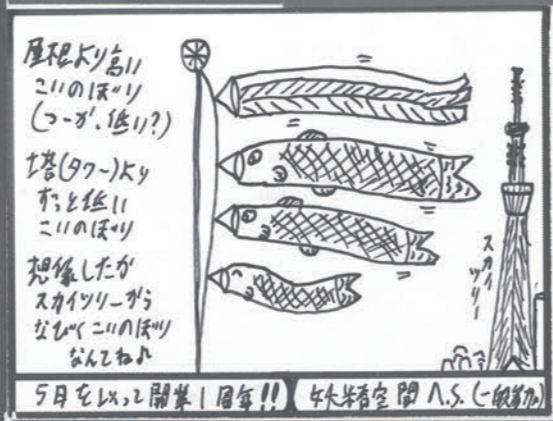 屋根より高い
こいのぼり
(つーか、低い?)
塔(タワー)より
ずっと低い
こいのぼり
想像したが
スカイツリーから
なびくこいのぼり
なんてね♪
スカイ
ツリー
5月を以って開業1周年!!
妖精空間 A.S.(一般参加)